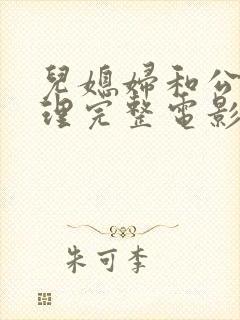 兒媳婦和公
理完整電影
朱可李